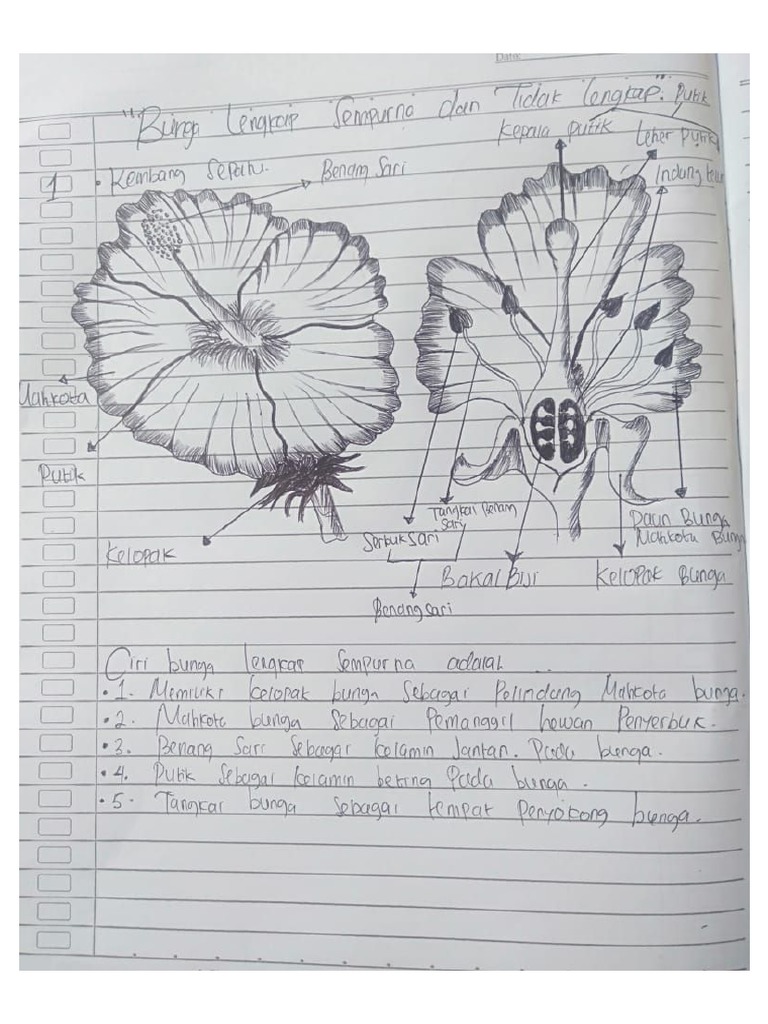 "Bunga lengkap Sempurna dan Tidak lengkap".
Putik
Kepala Putik
Leher Putik
1
• Kembang Sepatu.
Benang Sari
Indung
Mahkota
Putik
Kelopak
Tangkai Benang
Sari
Serbuk Sari
Benang sari
Bakal Biji
Daun Bunga
Mahkota Bunga
Kelopak Bunga
Ciri bunga lengkap Sempurna adalah ...
• 1. Memiliki kelopak bunga Sebagai Pelindung Mahkota bunga.
• 2. Mahkota bunga Sebagai Pemanggil hewan Penyerbuk.
• 3. Benang Sari Sebagai kelamin Jantan. Pada bunga.
• 4. Putik Sebagai kelamin betina Pada bunga.
• 5. Tangkai bunga sebagai tempat Penyokong bunga.